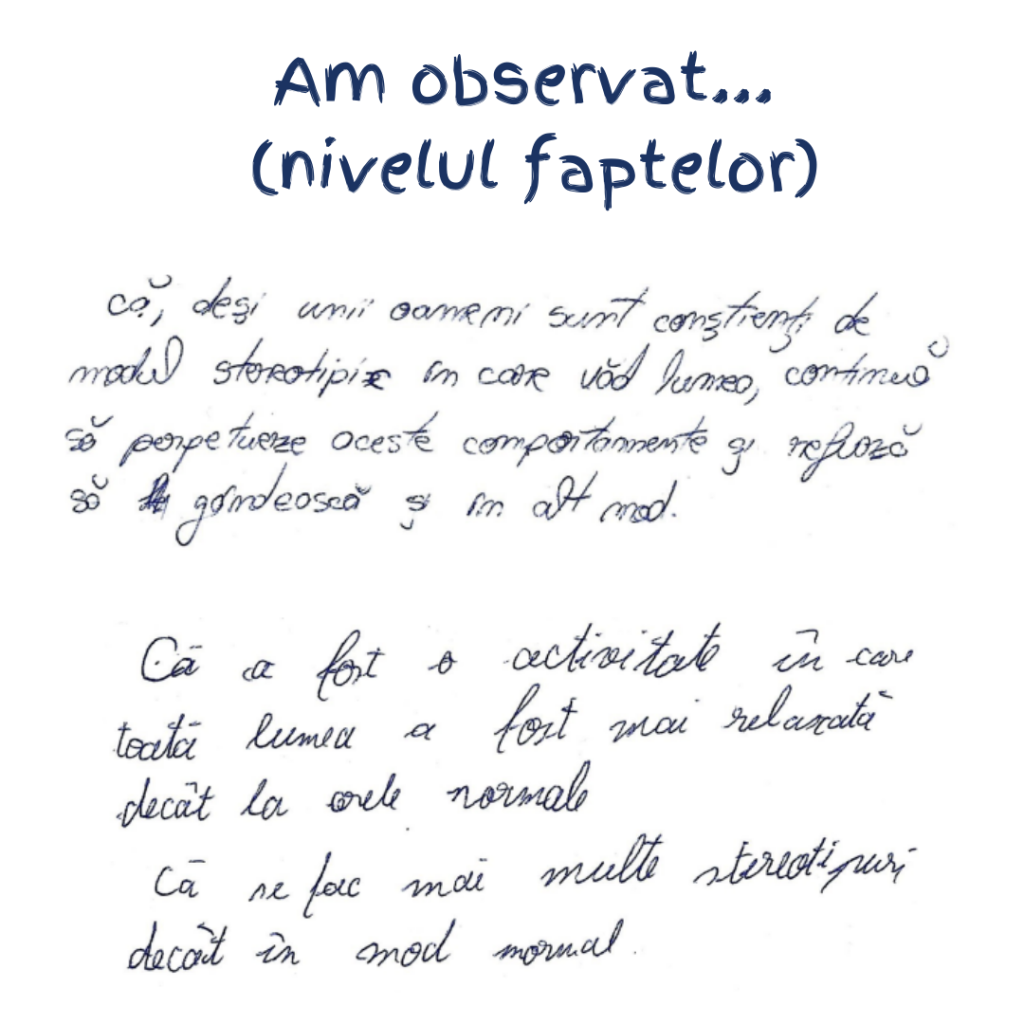 Am observat...
(nivelul faptelor)
că, deși unii oameni sunt conștienți de
modul stereotipic în care văd lumea, continuă
să perpetueze aceste comportamente și refuză
să gândească și în alt mod.
Că a fost o activitate în care
toată lumea a fost mai relaxată
decât la orele normale
Că se fac mai multe stereotipuri
decât în mod normal.